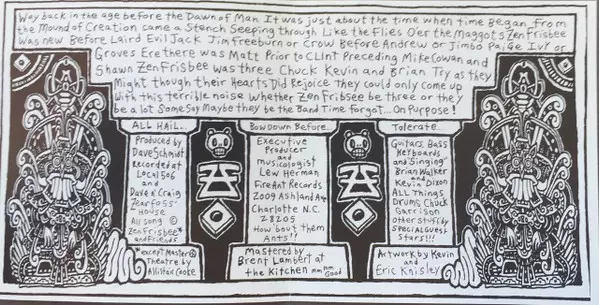 Way back in the age before the Dawn of Man It was just about the time when time Began From
the Mound of Creation came a Stench Seeping through Like the Flies O'er the Maggots Zen Frisbee
was new Before Laird Evil Jack Jim Freeburn or Crow Before Andrew or Jimbo Paige Ivy or
Groves Ere there was Matt Prior to Clint Preceding Mike Cowan and
Shawn ZenFrisbee was three Chuck Kevin and Brian Try as they
Might though their Hearts Did Rejoice They could only come up
With this terrible noise Whether Zen Fribsee be three or they
be a lot Some Say Maybe they be the Band Time forgot... On Purpose!
ALL HAIL...
Produced by
Dave Schmidt
Recorded at
Local 506
and
Dave n' Craig
Zearfoss'
House
All song ©
ZenFrisbee*
and Friends
*except Master
Theatre by
Allistair Cooke
Bow Down Before...
Executive
Producer
and
musicologist
Lew Herman
Fire Ant Records
2009 Ashland Ave
Charlotte N.C.
28205
How 'bout them
Ants!!
Mastered by
Brent Lambert at
the Kitchen mm mm Good
Tolerate...
Guitars Bass
Keyboards
and "Singing"
Brian Walker
and
Kevin Dixon
ALL Things
Drums Chuck
Garrison
Other stuff by
SPECIAL GUEST
Stars!!!
Artwork by Kevin
and
Eric Knisley